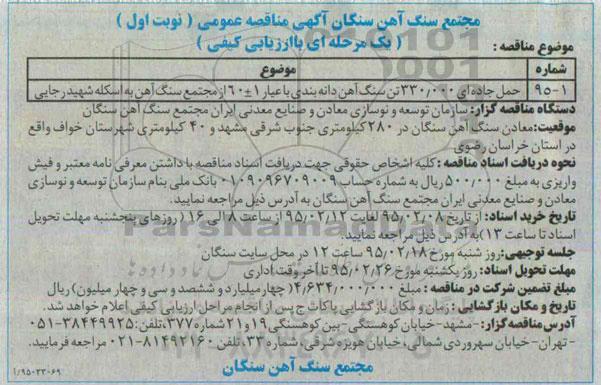 مجتمع سنگ آهن سنگان آگهی مناقصه عمومی ( نوبت اول )
( یک مرحله ای باارزیابی کیفی )
موضوع مناقصه :
شماره موضوع
۹۵-۱ حمل جاده‌ای ۳۳۰/۰۰۰ تن سنگ آهن دانه بندی با عیار ۱±۶۰ از مجتمع سنگ آهن به اسکله شهید رجایی
دستگاه مناقصه گزار: سازمان توسعه و نوسازی معادن و صنایع معدنی ایران مجتمع سنگ آهن سنگان
موقعیت: معادن سنگ آهن سنگان در ۲۸۰ کیلومتری جنوب شرقی مشهد و ۴۰ کیلومتری شهرستان خواف واقع
در استان خراسان رضوی
نحوه دریافت اسناد مناقصه : کلیه اشخاص حقوقی جهت دریافت اسناد مناقصه با داشتن معرفی نامه معتبر و فیش
واریزی به مبلغ ۵۰۰/۰۰۰ ریال به شماره حساب ۰۱۰۹۰۹۶۷۰۹۰۰۹ بانک ملی بنام سازمان توسعه و نوسازی
معادن و صنایع معدنی ایران مجتمع سنگ آهن سنگان به آدرس ذیل مراجعه نمایید.
تاریخ خرید اسناد: از تاریخ ۹۵/۰۲/۰۸ لغایت ۹۵/۰۲/۱۲ از ساعت ۸ الی ۱۶ ( روزهای پنجشنبه مهلت تحویل
اسناد تا ساعت ۱۳) به آدرس ذیل مراجعه نمایید.
جلسه توجیهی: روز شنبه مورخ ۹۵/۰۲/۱۸ ساعت ۱۲ در محل سایت سنگان
مهلت تحویل اسناد: روز یکشنبه مورخ ۹۵/۰۲/۲۶ تا آخر وقت اداری
مبلغ تضمین شرکت در مناقصه : مبلغ ۴/۶۳۴/۰۰۰/۰۰۰ (چهار میلیارد و ششصد و سی و چهار میلیون) ریال
تاریخ و مکان بازگشایی : زمان و مکان بازگشایی پاکات ج پس از انجام مراحل ارزیابی کیفی اعلام خواهد شد.
آدرس مناقصه گزار: - مشهد- خیابان کوهسنگی - بین کوهسنگی ۱۹ و ۲۱ شماره ۳۷۷، تلفن: ۳۸۴۴۹۹۲۵-۰۵۱
- تهران- خیابان سهروردی شمالی، خیابان هویزه شرقی، شماره ۳۳، تلفن ۸۱۴۹۲۱۶۰-۰۲۱ مراجعه فرمایید.
مجتمع سنگ آهن سنگان
۱/۹۵-۳۳-۶۹
ParsNamadData